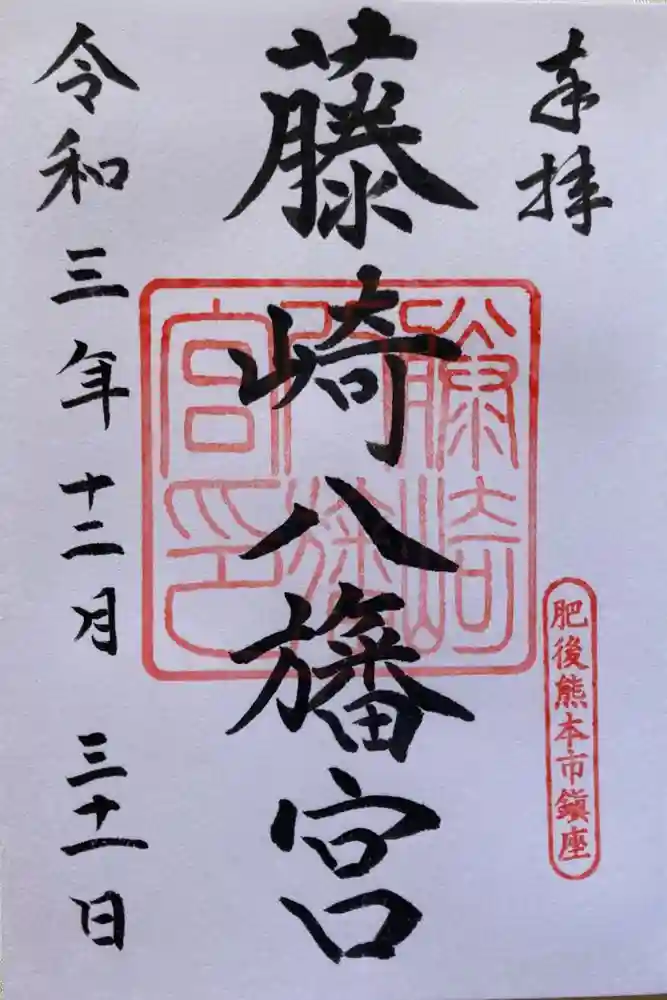 奉拝
肥後熊本市鎮座
藤崎八旛宮
藤崎
八旛
宮印
令和三年十二月三十一日